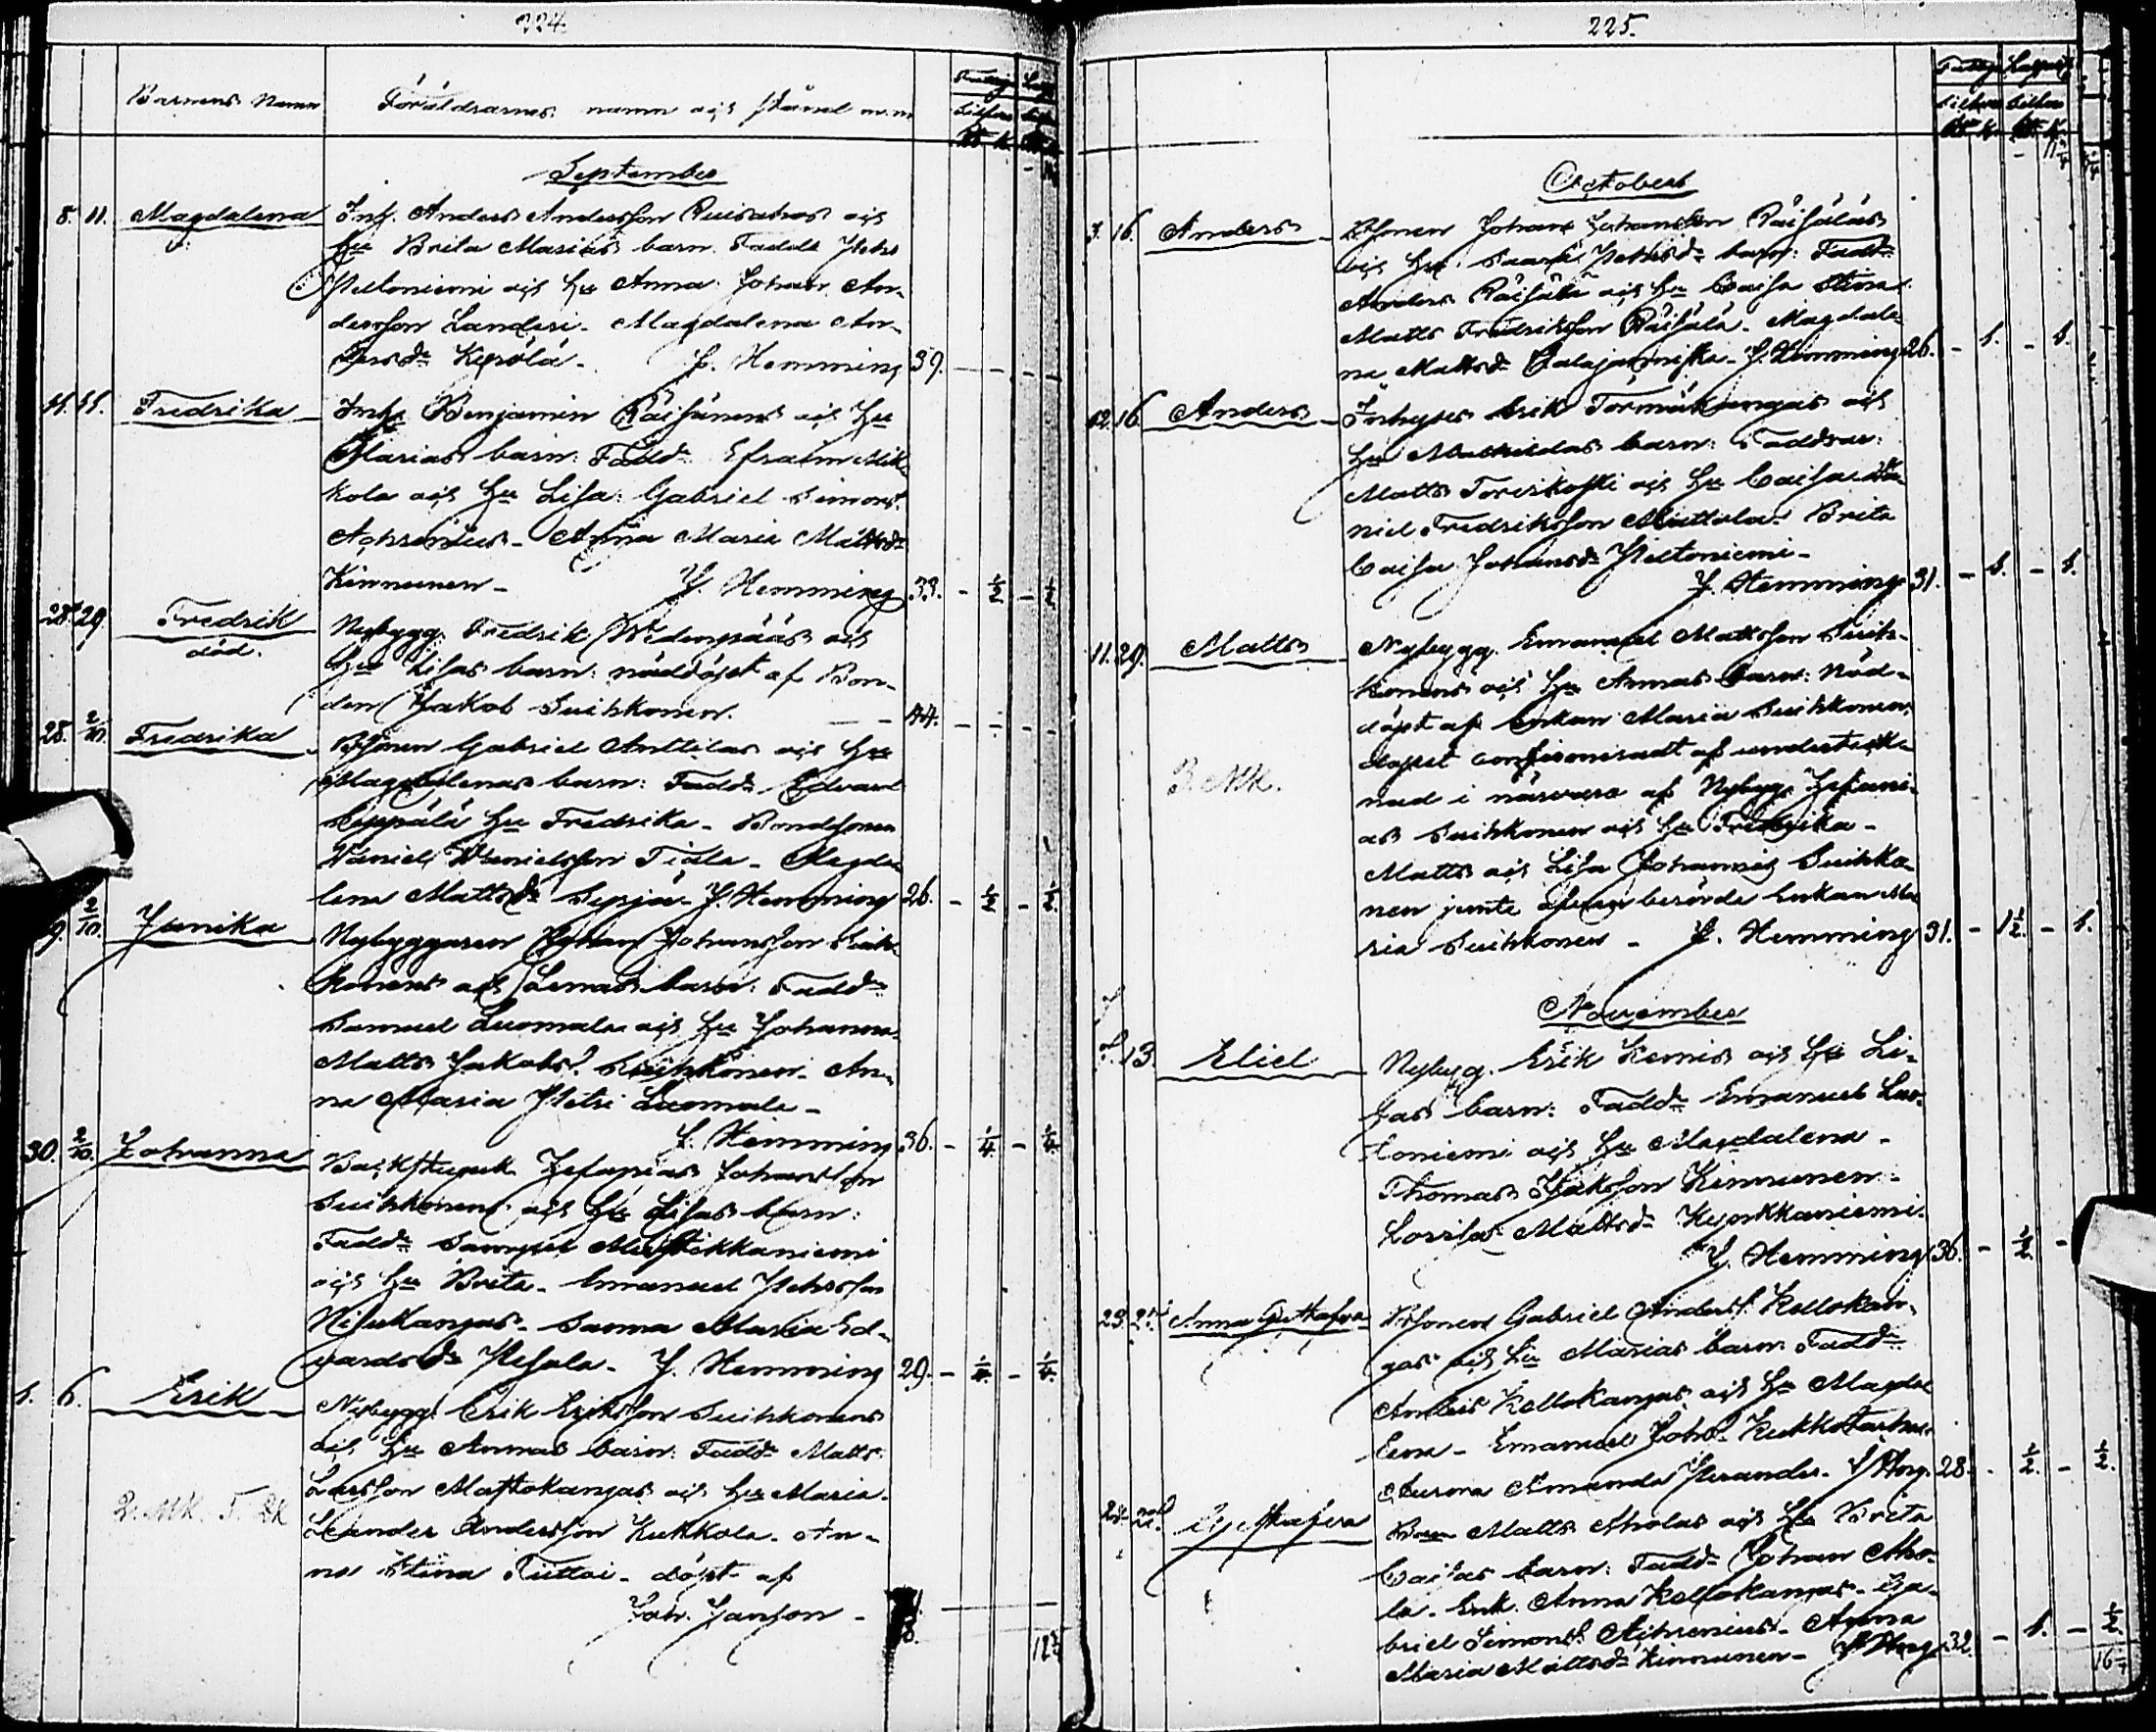 224.
Barnens Namn Föräldrarnes namn och stånd m.m.
September
8. 11. Magdalena Inh. Anders Andersson Ruisahos och
hu Brita Marias barn. Fadd: Petr
Peltoniemi och hu Anna. Johan An-
dersson Landeri. Magdalena An-
dersdr Kerölä. J. Hemming 39.
11. 11. Fredrika Inh. Benjamin Räisänens och Hu
Marias barn: Faddr Efraim Mik
kola och Hu Lisa: Gabriel Simons.
Achrenius - Anna Maria Mattsdr
Kinnunen - J. Hemming 33. - ½ - ½
28. 29. Fredrik Nybygg. Fredrik Wedenpääs och
död. Hu Lisas barn: nöddöpt af Bon-
den Jakob Suihkonen. - - 44. - -
28. 2/10. Fredrika Bsonen Gabriel Anttilas och Hu
Magdalenas barn: Fadd: Edvard
Seppälä Hu Fredrika - Bondsonen
Daniel Danielsson Tiala - Magda
lena Mattsdr J. Hemming 26. - ½ - ½
9. 2/10. Janika Nybyggaren Johan Johansson Suih
konens och Lenas barn: Faddr
Samuel Luomala och hu Johanna
Matts Jakobs. Suihkonen - An-
na Maria Petri Luomala -
J. Hemming 36. - ¼ - ¼
30. 2/10. Johanna Backstuguk Zefanias Johansson
Suihkonens och Hu Lisas barn:
Faddr Samuel Mustikkaniemi
och hu Brita - Emanuel Petersson
Niskakangas - Sanna Maria Ed-
vardsdr Pesola - J. Hemming 29. - ¼ - ¼
1. 6. Erik Nybygg. Erik Eriksson Suihkonens
och hu Annas barn: Faddr Matts
Larsson Mattokangas och hu Maria.
2. Mk. Leander Andersson Kukkola - An-
na Stina - döpt af
Joh. Janson -
225.
October
3. 16. Anders Bsonen Johan Johansson Räisäläs
och hu Saara Petersdr barn: Faddr
Anders Räisälä och Hu Caisa Stina
Matts Fredriksson Räisälä - Magdale-
na Mattsdr J. Hemming 26. - 1. - 1.
12. 16. Anders Inhyses Erik Törmäkangas och
hu Mathildas barn: Faddrar:
Matts Toriskoski och Hu Caisa - Da-
niel Fredriksson Mattola - Brita
Caisa Johansdr Peltoniemi -
J. Hemming 31. - 1. - 1.
11. 29. Matts Nybygg. Emanuel Mattsson Suih-
konens och hu Annas barn: Nöd-
döpt af Enkan Maria Suihkonen,
dopet confirmeradt af underteck-
3. Mk. nad i närvaro af Nybygg. Zefani-
as Suihkonen och hu Fredrika -
Matts och Lisa Johannis Suihko
nen jemte äfvan berörde Enkan Ma
ria Suihkonen - J. Hemming 31. - 1½ - 1.
November
7. 13. Eliel Nybygg. Erik Kemis och Hu Li-
sas barn: Faddr Emanuel Luo-
toniemi och Hu Magdalena -
Thomas Isaksson Kinnunen -
Lovisa Mattsdr
J. Hemming 36. - ½ -
23. Anna Gustafva Bsonen Gabriel Anderss. Kellokan-
gas och Hu Marias barn Faddr
Anders Kellokangas och Hu Magda
lena - Emanuel Johs.
Aurora Amanda Perander. J. Hmg. 28. - ½ - ½.
Gustafva Bon Matts Aholas och Hu Brita
Caisas barn: Faddr Johan Aho-
la - Enk. Anna Kellokangas - Ga-
briel Simons. Achrenius - Anna
Maria Mattsdr Kinnunen - J. Hmg 32. - 1. - ½